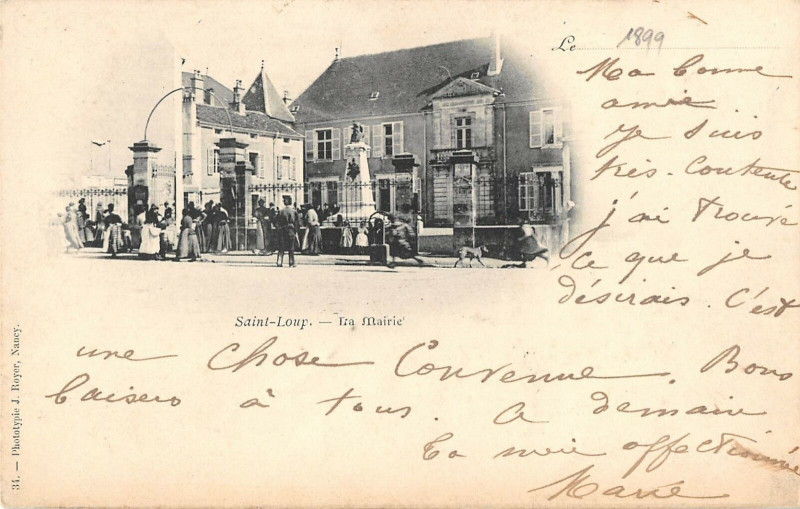 Le 1899
Ma bonne
amie
je suis
très-Contente
j'ai trouvé
ce que je
désirais. C'est
Saint-Loup. — La Mairie
une chose Convenue. Bons
baisers à tous. A demain
Ta mie affectionnée
Marie
34. — Phototypie J. Royer, Nancy.